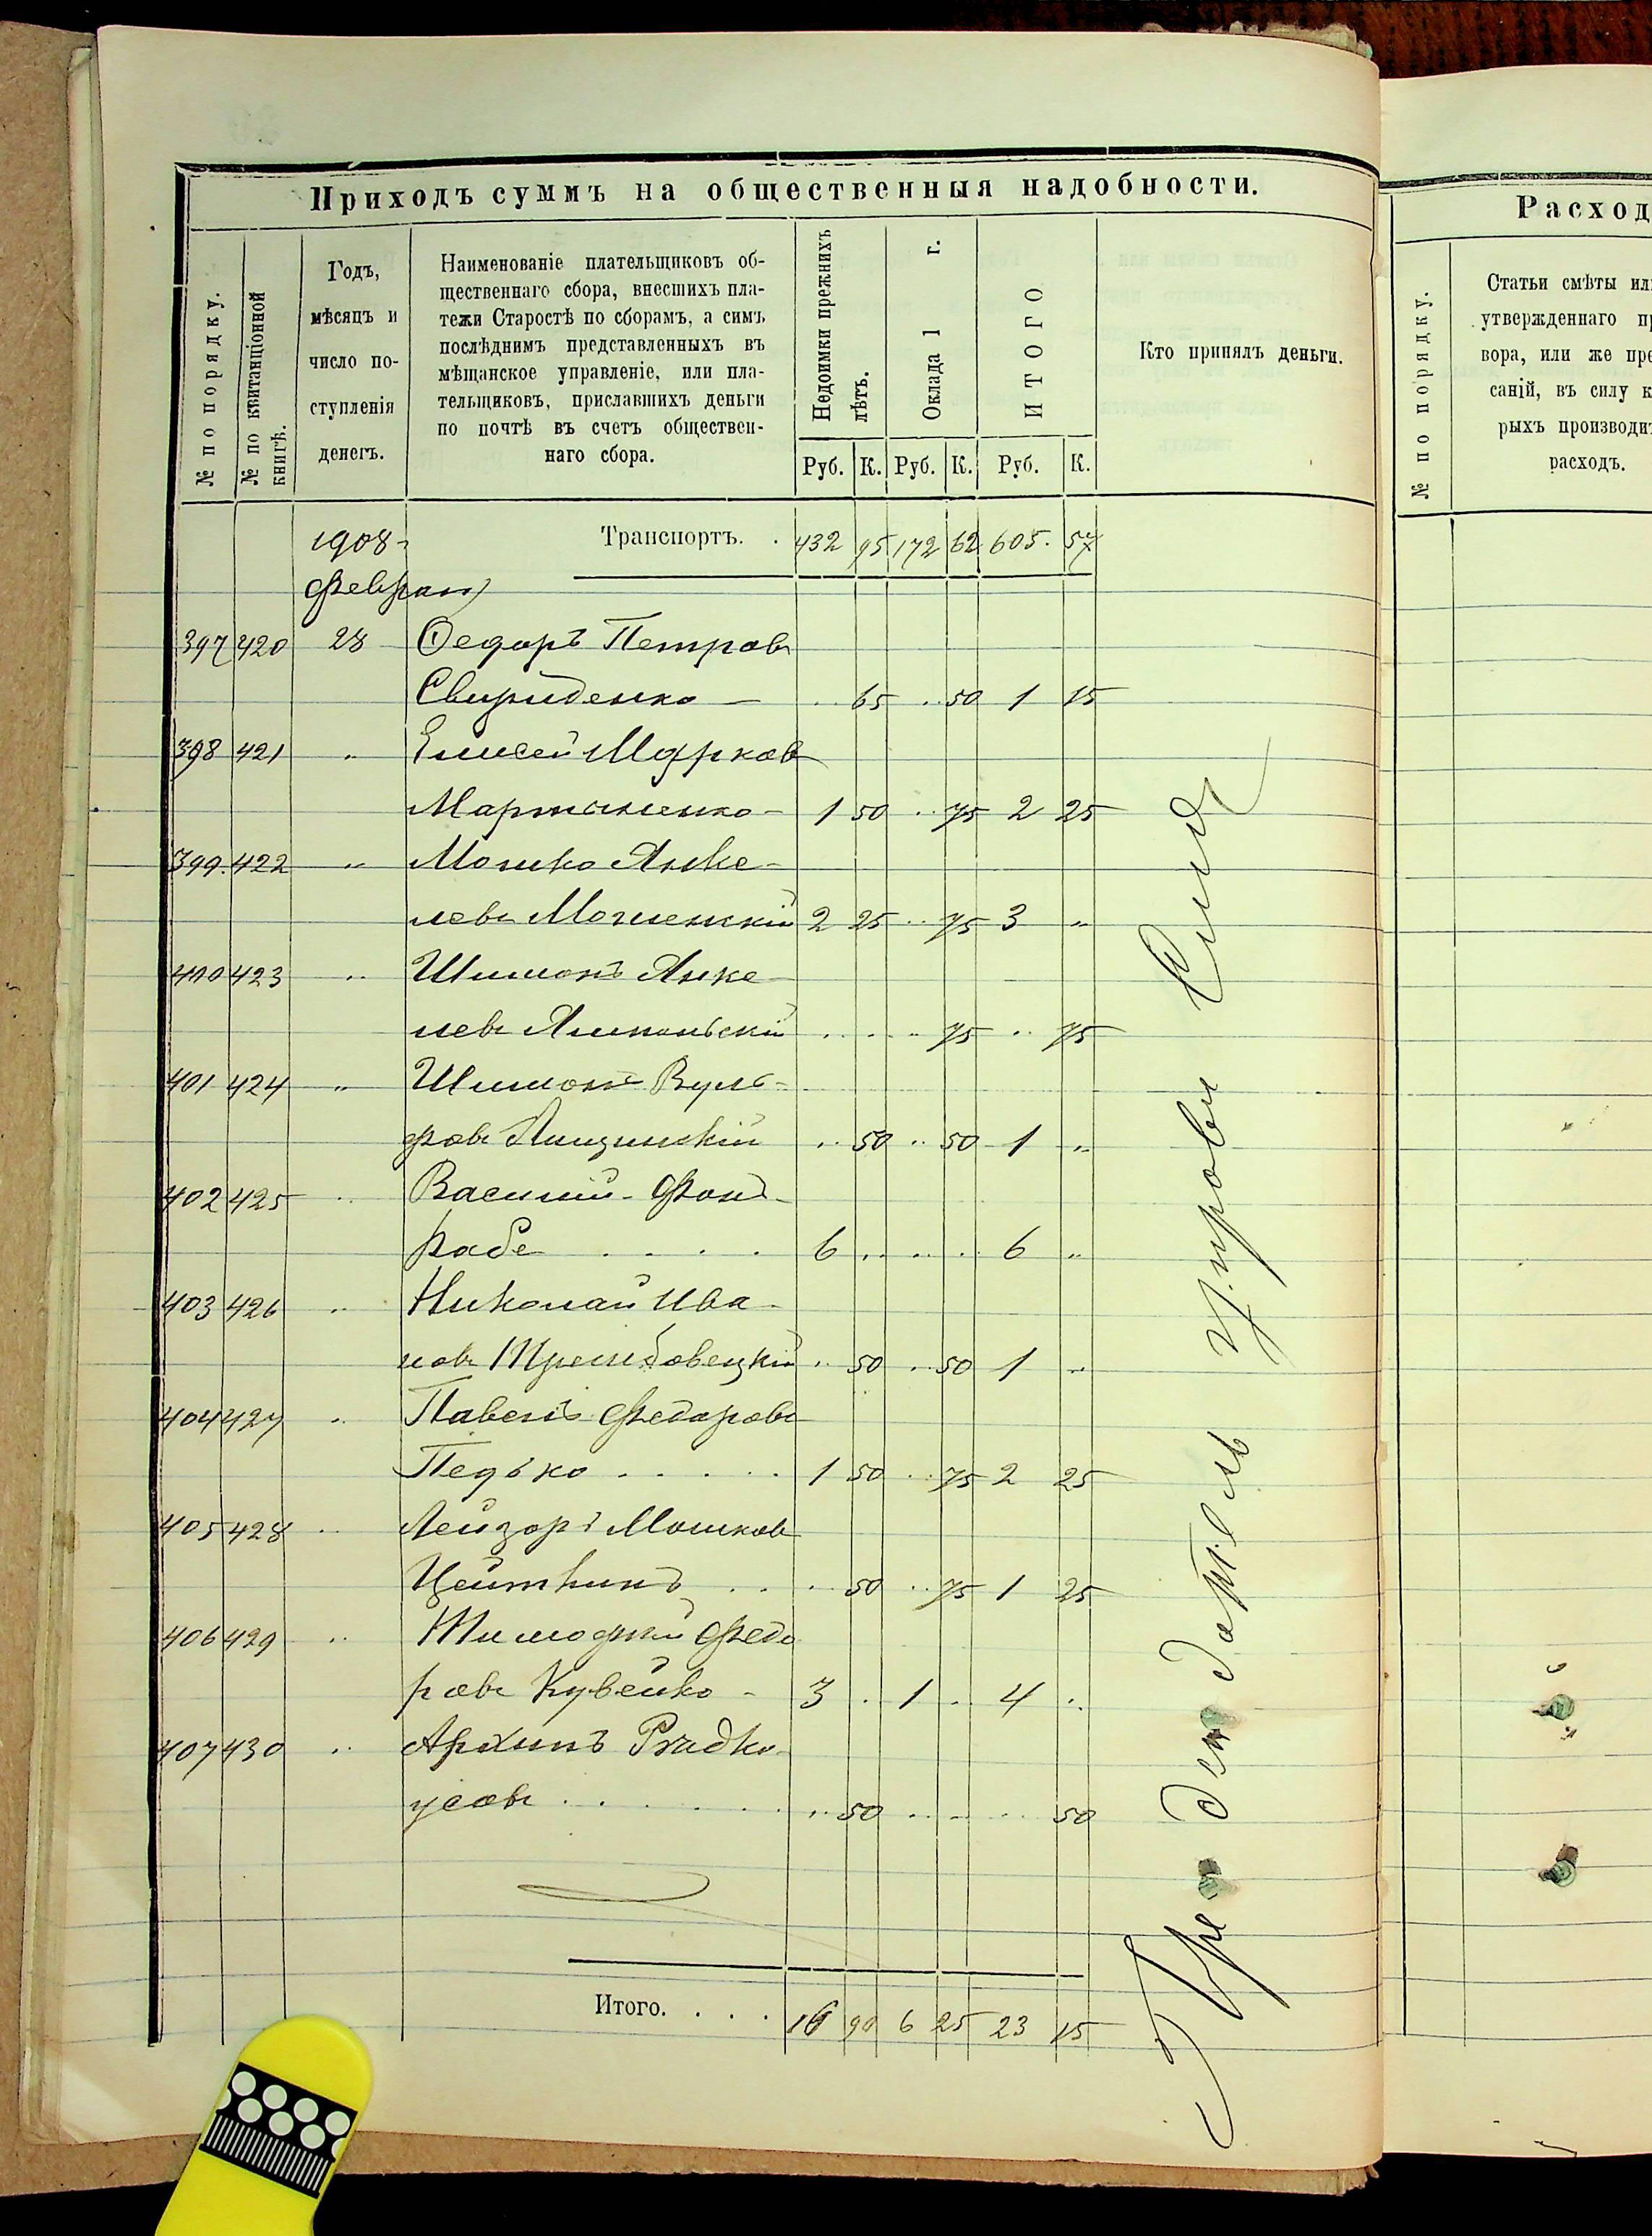 Приходъ суммъ на общественныя надобности.
№ по порядку.
№ по квитанціонной книгѣ.
Годъ,
мѣсяцъ и
число по-
ступленія
денегъ.
Наименованіе плательщиковъ об-
щественнаго сбора, внесшихъ пла-
тежи Старостѣ по сборамъ, а симъ
послѣднимъ представленныхъ въ
мѣщанское управленіе, или пла-
тельщиковъ, приславшихъ деньги
по почтѣ въ счетъ обществен-
наго сбора.
Недоимки прежнихъ лѣтъ.
Оклада 1 г.
ИТОГО
Кто принялъ деньги.
Руб. К. Руб. К. Руб. К.
1908 Транспортъ. . 432 95 172 62 605. 57
397 420 28 Ѳедоръ Петровъ
Свириденко — .. 65 .. 50 1 15
398 421 " Елисей Марковъ
Мартыненко - 1 50 .. 75 2 25
399. 422 " Мошко Янке-
левъ 2 25 .. 75 3 "
400 423 " Шимонъ Янке-
левъ Ямпольскій . . . . 75 .. 75
401 424 " Шимонъ Вуль-
фовъ .. 50 .. 50 1 "
402 425 " Василій Фонъ-
Рабе . . . . 6 . . . . 6 "
403 426 " Николай Ива-
новъ Трембовецкій .. 50 .. 50 1 "
404 427 " Павелъ Федоровъ
Педько . . . . . 1 50 .. 75 2 25
405 428 " Лейзоръ Мошковъ
Цейтлинъ . . . 50 .. 75 1 25
406 429 " Тимофей Федо
ровъ Кувейко - 3 . 1 . 4 .
407 430 " Архипъ
усовъ . . . . . .. 50 . . . . 50
Итого. . . . 16 90 6 25 23 15
Расход
№ по порядку.
Статьи смѣты ил
утвержденнаго пр
вора, или же пре
саній, въ силу к
рыхъ производит
расходъ.